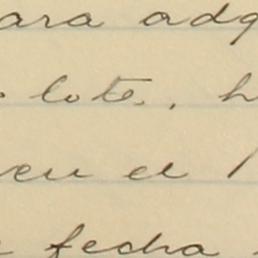 ara adq
lote, h
en el
fecha